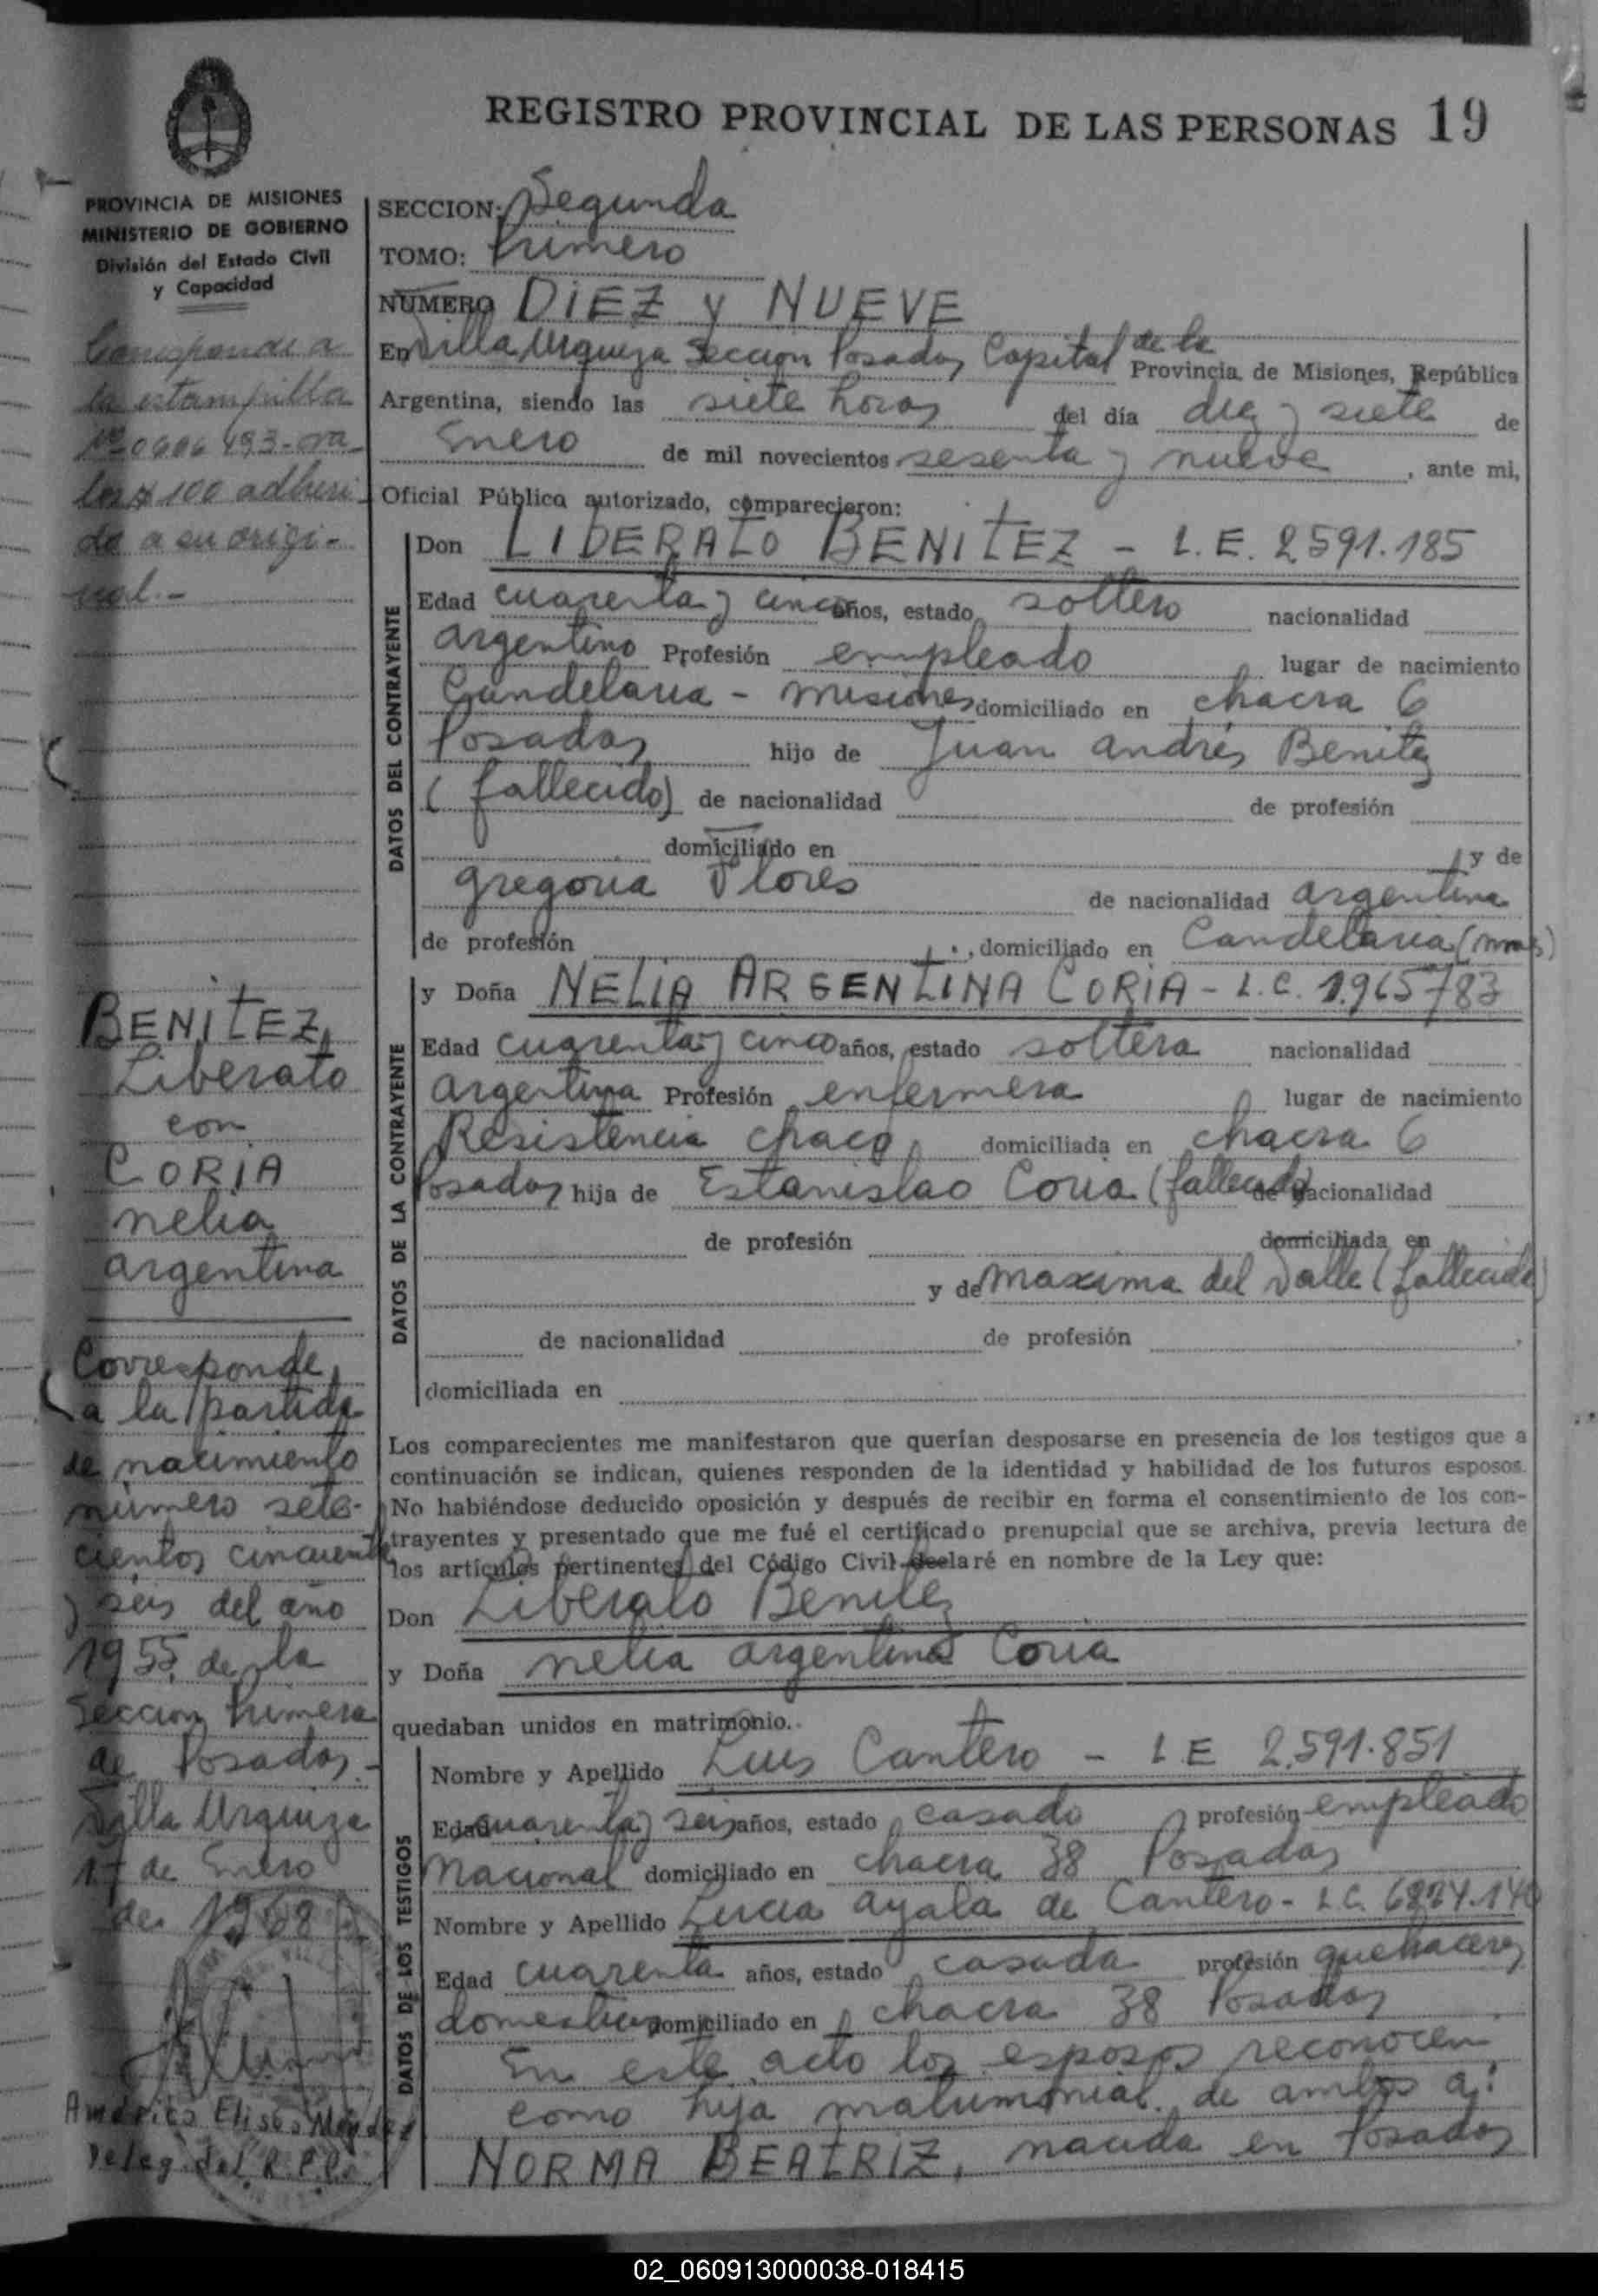 REGISTRO PROVINCIAL DE LAS PERSONAS 19
PROVINCIA DE MISIONES
MINISTERIO DE GOBIERNO
División del Estado Civil
y Capacidad
Corresponde a
la estampilla
Nº 0606493-ova
lor $ 100 adheri
do a su origi-
nal.-
BENITEZ,
Liberato
con
CORIA
Nelia
Argentina
Corresponde
a la partida
de nacimiento
número sete-
cientos cincuenta
y seis del año
1955 de la
Sección Primera
de Posadas.-
Villa Urquiza
17 de Enero
de 1968
Américo Eliseo Méndez
Deleg. del R.P.P.
SECCION: Segunda
TOMO: Primero
NUMERO DIEZ y NUEVE
En Villa Urquiza Seccion Posadas Capital de la Provincia de Misiones, República
Argentina, siendo las siete horas del día diez y siete de
Enero de mil novecientos sesenta y nueve, ante mi,
Oficial Público autorizado, comparecieron:
DATOS DEL CONTRAYENTE
Don LIBERATO BENITEZ - L.E. 2591.185
Edad cuarenta y cinco años, estado soltero nacionalidad
argentino Profesión empleado lugar de nacimiento
Candelaria - Misiones domiciliado en chacra 6
Posadas hijo de Juan Andrés Benitez
(fallecido) de nacionalidad de profesión
domiciliado en y de
Gregoria Flores de nacionalidad argentina
de profesión , domiciliado en Candelaria (Mnes)
DATOS DE LA CONTRAYENTE
y Doña NELIA ARGENTINA CORIA - L.C. 1.965783
Edad cuarenta y cinco años, estado soltera nacionalidad
argentina Profesión enfermera lugar de nacimiento
Resistencia Chaco, domiciliada en chacra 6
Posadas hija de Estanislao Coria (fallecido) de nacionalidad
de profesión domiciliada en
y de Maxima del Valle (fallecida)
de nacionalidad de profesión
domiciliada en
Los comparecientes me manifestaron que querían desposarse en presencia de los testigos que a
continuación se indican, quienes responden de la identidad y habilidad de los futuros esposos.
No habiéndose deducido oposición y después de recibir en forma el consentimiento de los con-
trayentes y presentado que me fué el certificado prenupcial que se archiva, previa lectura de
los artículos pertinentes del Código Civil declaré en nombre de la Ley que:
Don Liberato Benitez
y Doña Nelia Argentina Coria
quedaban unidos en matrimonio..
DATOS DE LOS TESTIGOS
Nombre y Apellido Luis Cantero - L E 2.591.851
Edad cuarenta y seis años, estado casado profesión empleado
Nacional domiciliado en chacra 38 Posadas
Nombre y Apellido Lucia Ayala de Cantero - L.C. 6824.140
Edad cuarenta años, estado casada profesión quehaceres
domesticos domiciliado en chacra 38 Posadas
En este acto los esposos reconocen
como hija matrimonial de ambos a:
NORMA BEATRIZ, nacida en Posadas
02_060913000038-018415